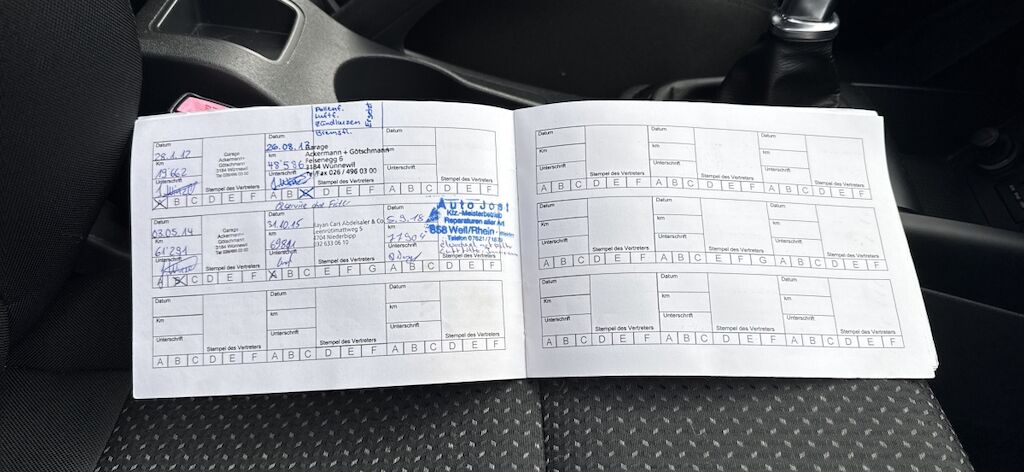 Pollenf.
Luftf.
Zündkerzen
Bremsfl.
Ersetzt
Datum
28.1.12
Km
19662
Unterschrift
Garage
Ackermann+
Götschmann
3184 Wünnewil
Stempel des Vertreters
A B C D E F
Datum
26.08.13
km
48536
Unterschrift
Garage
Ackermann + Götschmann
Felsenegg 6
3184 Wünnewil
Tel/Fax 026 / 496 03 00
Stempel des Vertreters
A B C D E F
Datum
km
Unterschrift
Stempel des Vertreters
A B C D E F
Ölservice ohne Filter
Datum
03.05.14
Km
61231
Unterschrift
Garage
Ackermann+
Götschmann
3184 Wünnewil
Stempel des Vertreters
A B C D E F
Datum
31.10.15
km
69811
Unterschrift
Rayan Cars Abdelsaler & Co.
4704 Niederbipp
032 633 06 10
Stempel des Vertreters
A B C D E F G
Datum
5.9.18
km
Unterschrift
Auto Jost
Kfz.-Meisterbetrieb
Reparaturen aller Art
Weil/Rhein
Telefon 07621 /
A B C D E F
Datum
km
Unterschrift
Stempel des Vertreters
A B C D E F
Datum
km
Unterschrift
Stempel des Vertreters
A B C D E F
Datum
km
Unterschrift
Stempel des Vertreters
A B C D E F
Datum
Km
Unterschrift
Stempel des Vertreters
A B C D E F
Datum
km
Unterschrift
Stempel des Vertreters
A B C D E F
Datum
km
Unterschrift
Stempel des Vertreters
A B C D E F
Datum
Km
Unterschrift
Stempel des Vertreters
A B C D E F
Datum
km
Unterschrift
Stempel des Vertreters
A B C D E F G
Datum
km
Unterschrift
Stempel des Vertreters
A B C D E F
Datum
Km
Unterschrift
Stempel des Vertreters
A B C D E F
Datum
km
Unterschrift
Stempel des Vertreters
A B C D E F
Datum
km
Unterschrift
Stempel des Vertreters
A B C D E F